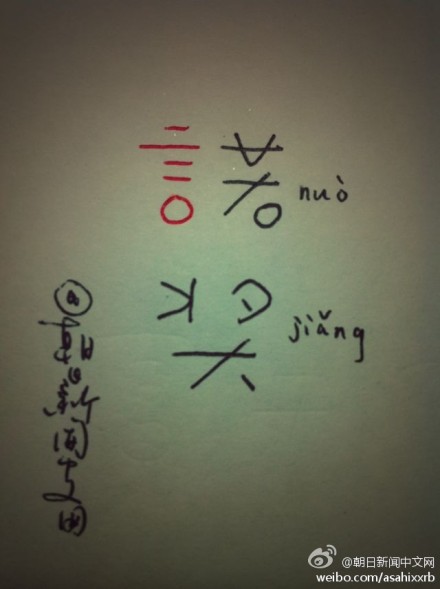 諾 nuò
獎 jiǎng
@朝日新闻中文网
@朝日新闻中文网
weibo.com/asahixxrb